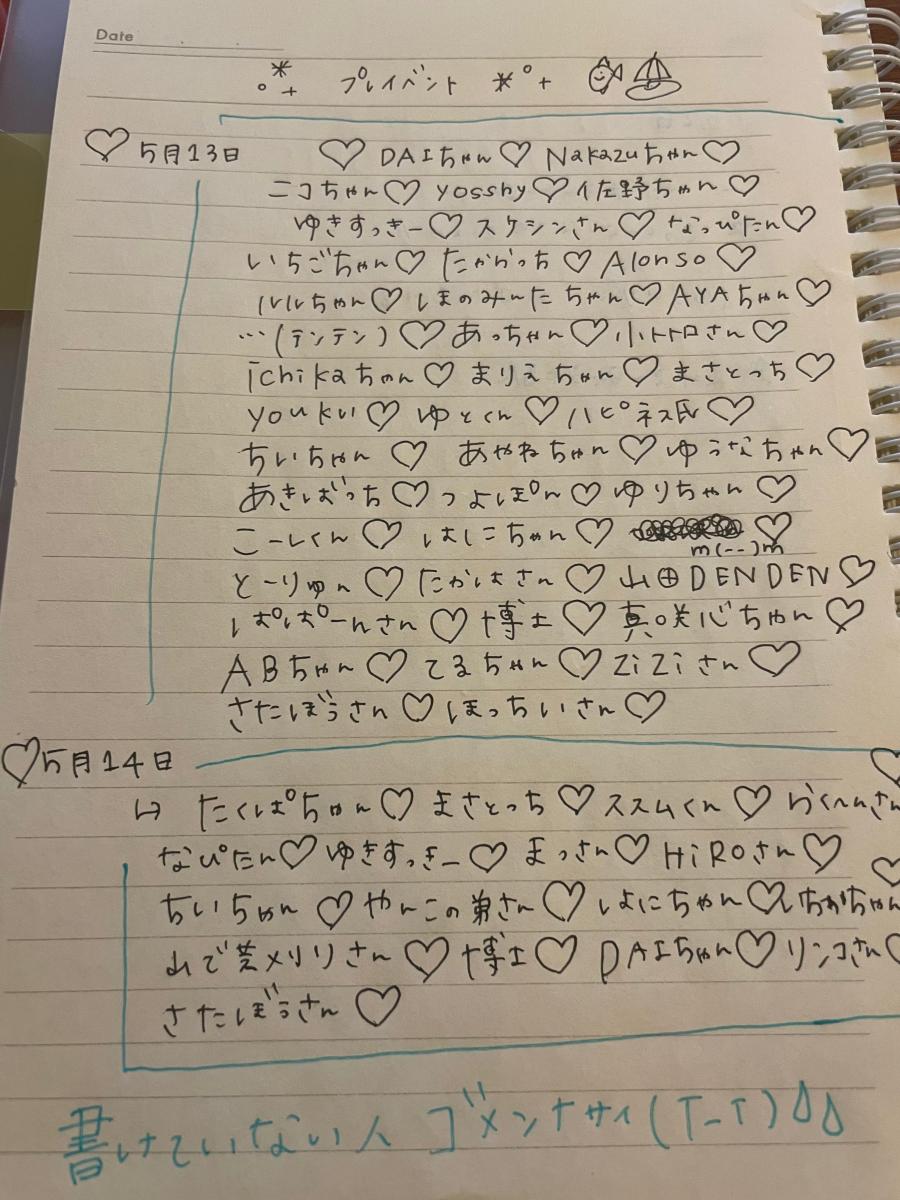 Date
プレイベント
♡5月13日 ♡ DAIちゃん♡ Nakazuちゃん♡
ニコちゃん♡ yosshy♡ 佐野ちゃん♡
ゆきすっきー♡ スケシンさん♡ なっぴたん♡
いちごちゃん♡ たからっち♡ Alonso♡
ルルちゃん♡ ほのみーたちゃん♡ AYAちゃん♡
…(テンテン)♡ あっちゃん♡ 小トトロさん♡
ichikaちゃん♡ まりえちゃん♡ まさとっち♡
youkui♡ ゆとくん♡ ハピネス氏♡
ちいちゃん♡ あやねちゃん♡ ゆうなちゃん♡
あきばっち♡ つよぽん♡ ゆりちゃん♡
こーしくん♡ はしこちゃん♡ ♡
m(--)m
とーりゅん♡ たかはさん♡ 山⊕DENDEN♡
ぱぱーんさん♡ 博士♡ 真咲心ちゃん♡
ABちゃん♡ てるちゃん♡ ZiZiさん♡
さたぼうさん♡ ほっちいさん♡
♡5月14日
↪ たくぱちゃん♡ まさとっち♡ ススムくん♡ らくへんさん♡
なぴたん♡ ゆきすっきー♡ まっさん♡ HiROさん♡
ちいちゃん♡ やんこの弟さん♡ はにちゃん♡
山で芝メリリさん♡ 博士♡ DAIちゃん♡ リンコさん♡
さたぼうさん♡
書けていない人 ゴメンナサイ(T-T)